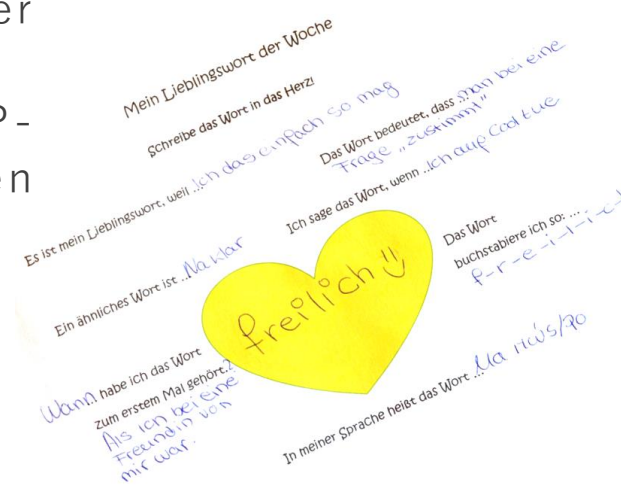 er
P-
en
Mein Lieblingswort der Woche
Schreibe das Wort in das Herz!
Es ist mein Lieblingswort, weil ...ich das einfach so mag
Das Wort bedeutet, dass ...man bei eine
Frage „zustimmt“
Ein ähnliches Wort ist ...Na klar
Ich sage das Wort, wenn ...ich auf Cool tue
freilich
Das Wort
buchstabiere ich so: ...
f-r-e-i-l-i-c-
Wann habe ich das Wort
zum erstem Mal gehört..?
Als ich bei eine
Freundin von
mir war.
In meiner Sprache heißt das Wort ...